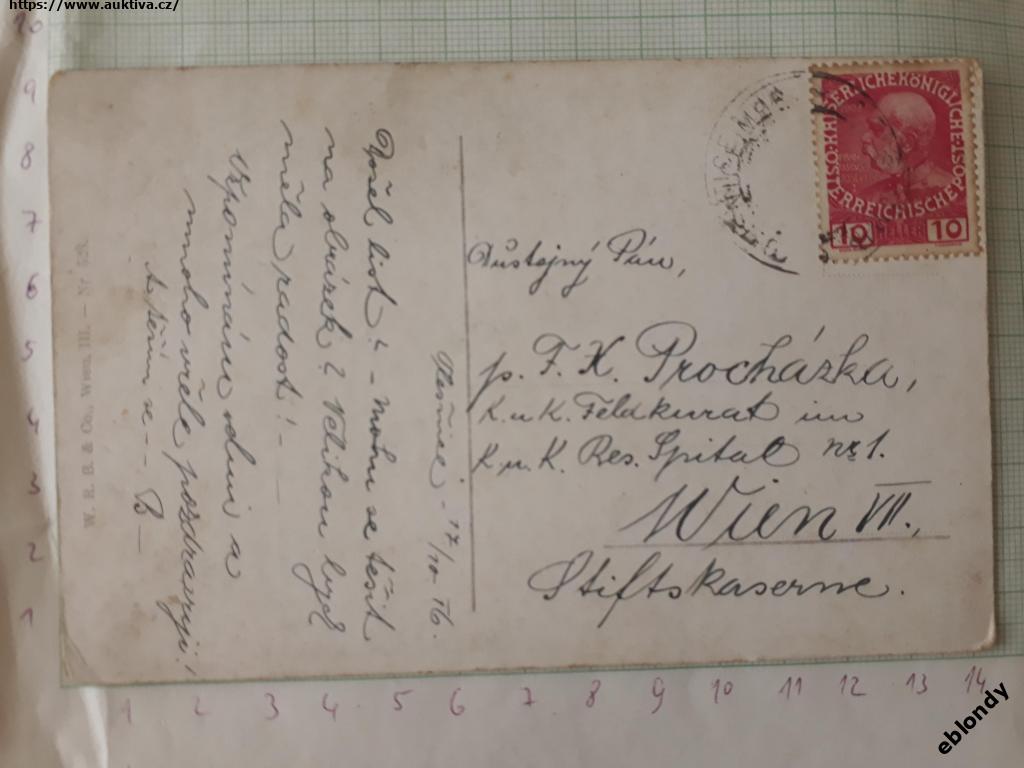 https://www.auktiva.cz/
10
9
8
7
6
5
4
3
2
1
1 2 3 4 5 6 7 8 9 10 11 12 13 14
W. R. B. & Co., Wien, III. – Nr
17/10. 16.
Došel list? – Mohu se těšit
na obrázek? Velikou bych
měla radost! –
Vzpomínám a
mnoho vřele pozdravuji!
a těším se – – B –
Důstojný Pán,
p. F. X. Procházka,
K. u K. Feldkurat im
K. u. K. Res. Spital nr 1.
Wien VII.,
Stiftskaserne.
KAISERLICHEKÖNIGLICHE
ÖSTERREICHISCHE POST
10 HELLER 10
eblondy